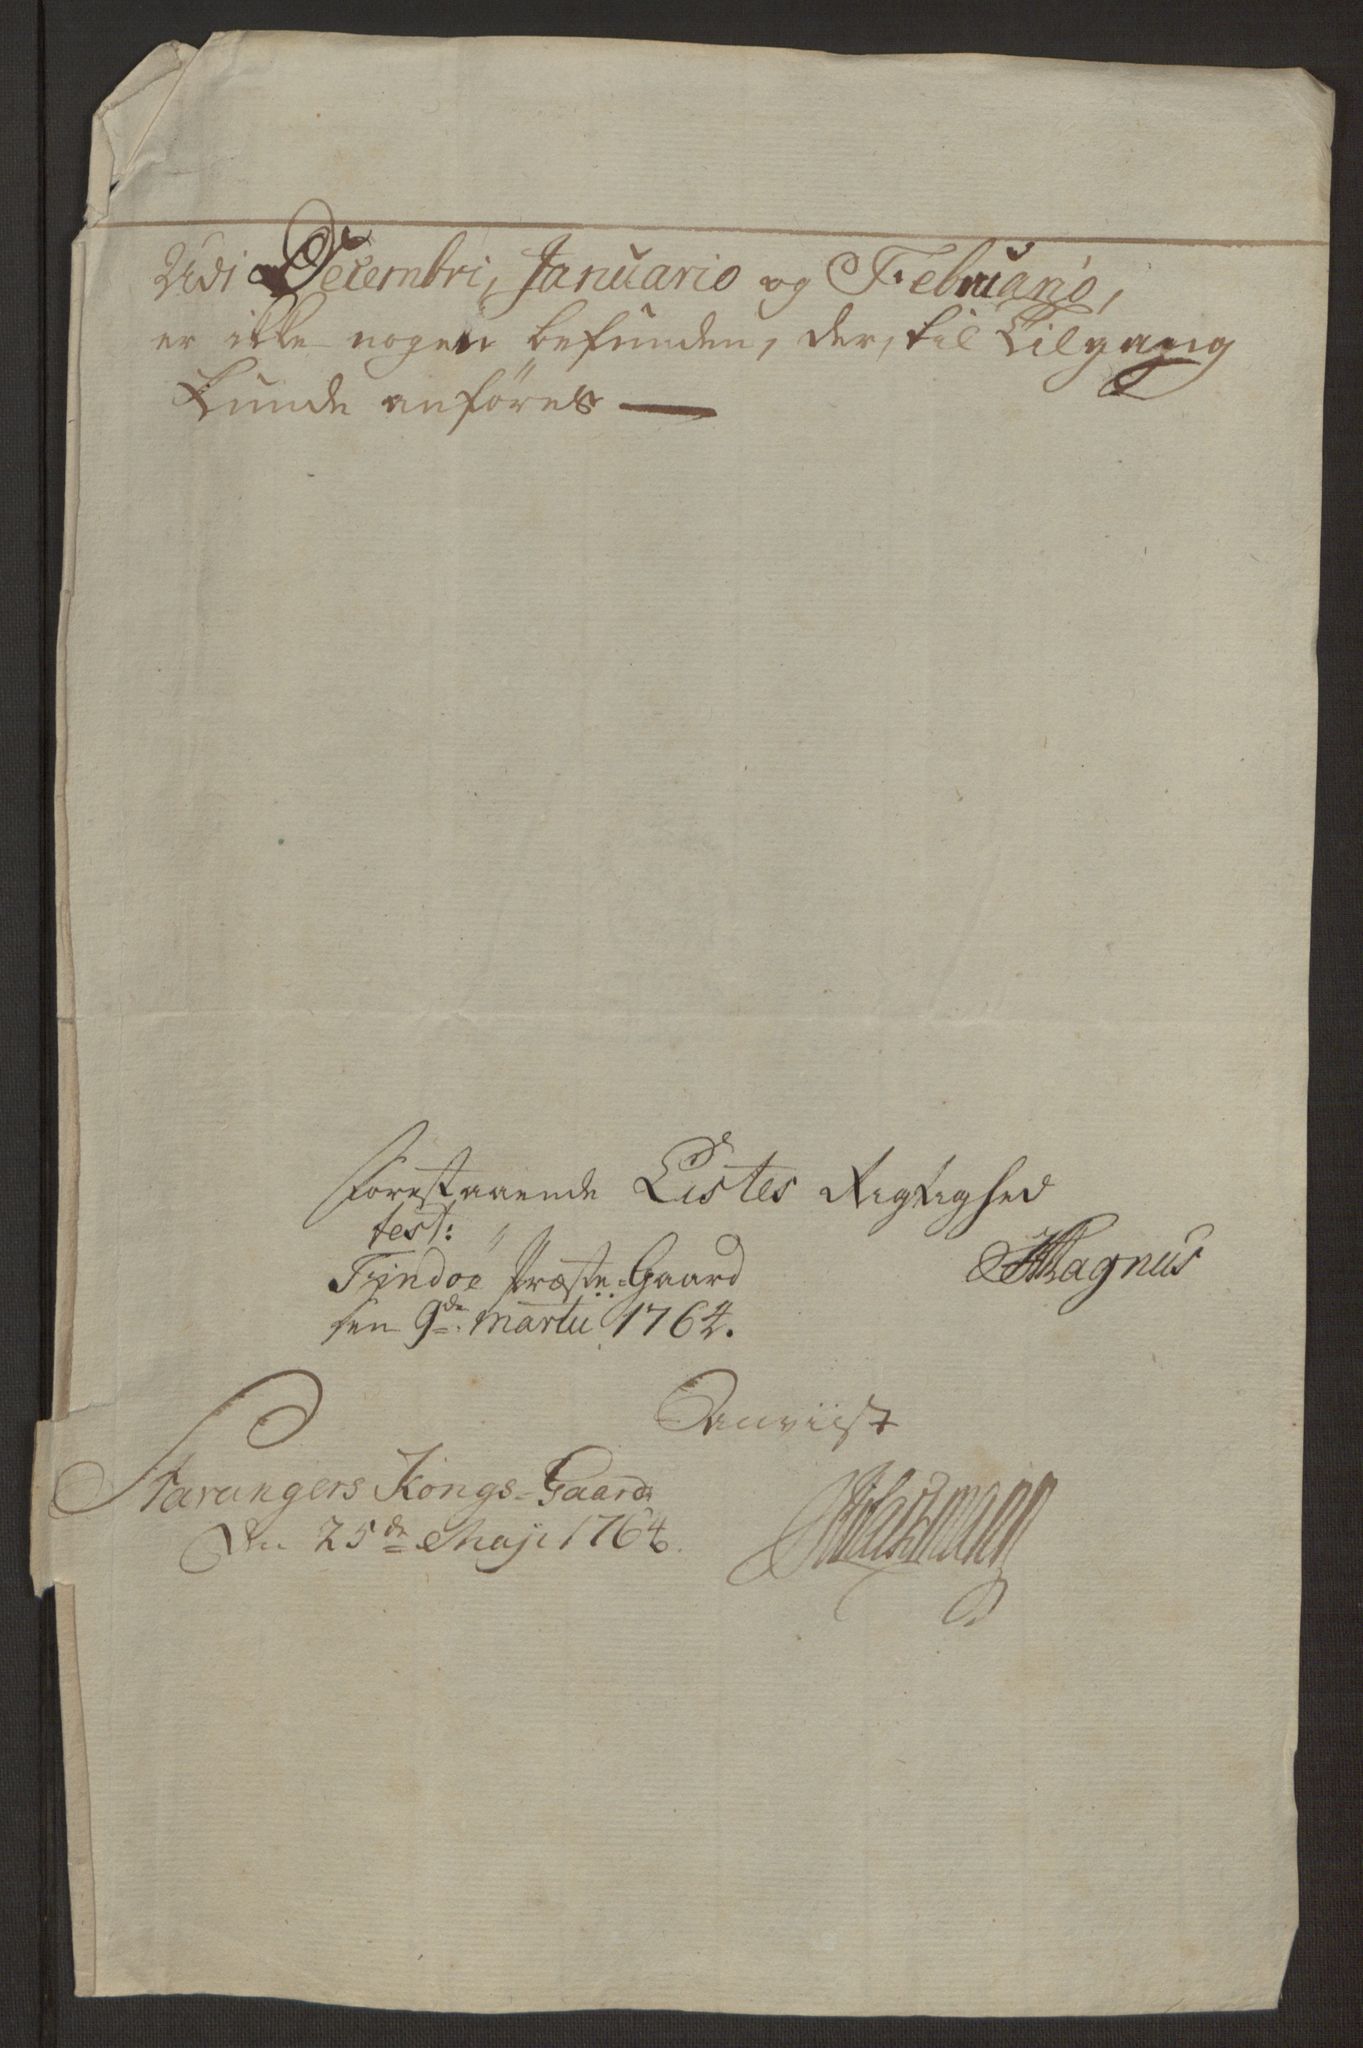 Udi Decembri, Januario og Februario,
er ikke nogen befunden, der, til Tilgang
kunde anføres —
Forestaaende Listes Rigtighed
test:
Findöe Præste-Gaard
den 9de Martii 1764.
HMagnus
Anviist
Stavangers Kongs-Gaard
den 25de Maji 1764.